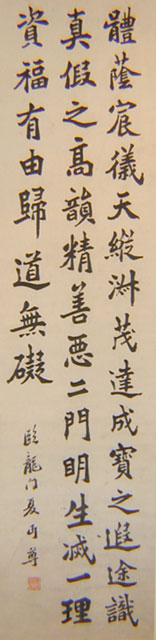 體蔭宸儀天縱淋茂達成寶之遐途識
真假之高韻精善惡二門明生滅一理
資福有由歸道無礙
臨龍門夏丏尊